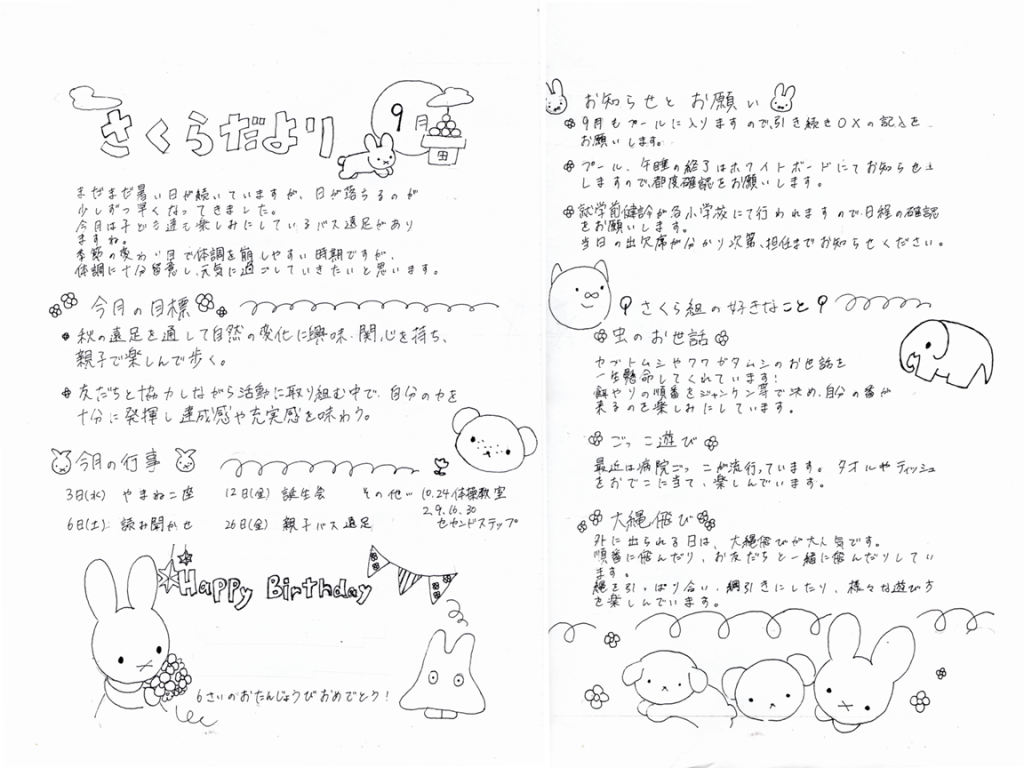 さくらだより
9月
まだまだ暑い日が続いていますが、日が落ちるのが
少しずつ早くなってきました。
今月は子ども達も楽しみにしているバス遠足があり
ますね。
季節の変わり目で体調を崩しやすい時期ですが、
体調に十分留意し、元気に過ごしていきたいと思います。
今月の目標
秋の遠足を通して自然の変化に興味・関心を持ち、
親子で楽しんで歩く。
友だちと協力しながら活動に取り組む中で、自分の力を
十分に発揮し達成感や充実感を味わう。
今月の行事
3日(水) やまねこ座 12日(金) 誕生会 その他 10.24 体操教室
2.9.16.30
6日(土) 読み聞かせ 26日(金) 親子バス遠足 セカンドステップ
Happy Birthday
6さいのおたんじょうびおめでとう!
お知らせと お願い
9月もプールに入りますので、引き続きOXの記入を
お願いします。
プール、午睡の終了はホワイトボードにてお知らせ
しますので、都度確認をお願いします。
就学前健診が各小学校にて行われますので、日程の確認
をお願いします。
当日の出欠席が分かり次第、担任までお知らせください。
さくら組の好きなこと
虫のお世話
カブトムシやクワガタムシのお世話を
一生懸命してくれています!
餌やりの順番をジャンケン等で決め、自分の番が
来るのを楽しみにしています。
ごっこ遊び
最近は病院ごっこが流行っています。タオルやティッシュ
をおでこに当て、楽しんでいます。
大縄飛び
外に出られる日は、大縄飛びが大人気です。
順番に飛んだり、お友だちと一緒に飛んだりしてい
ます。
縄を引っぱり合い、綱引きにしたり、様々な遊び方
を楽しんでいます。